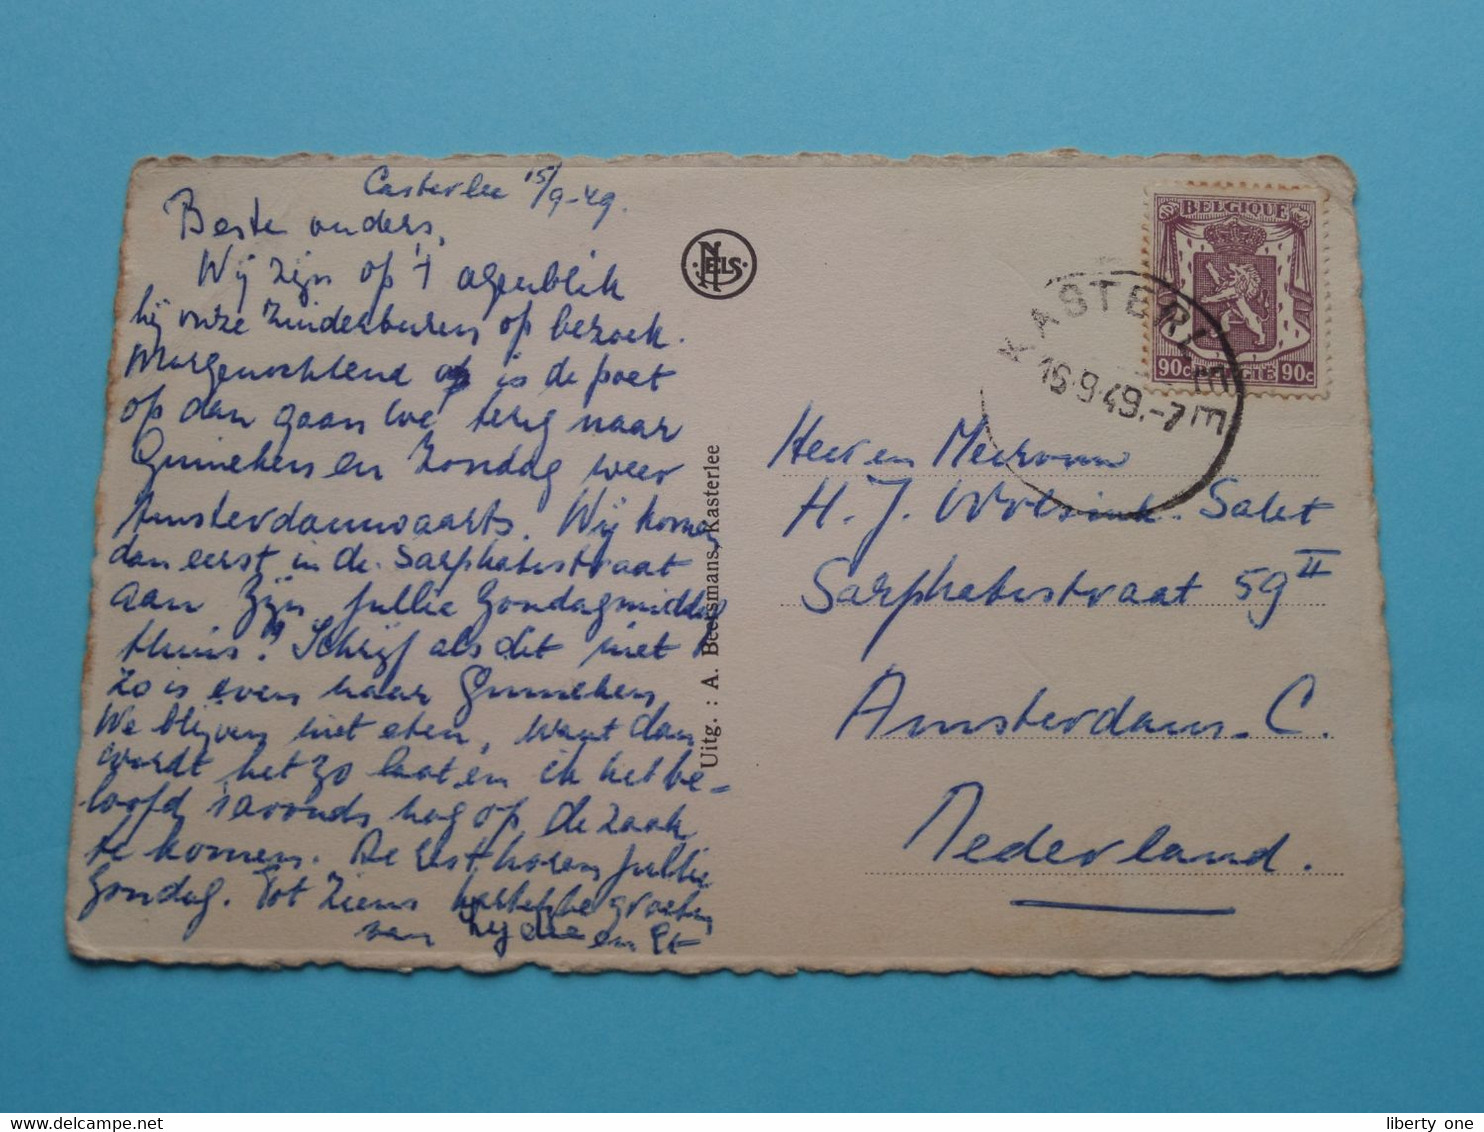 Casterlee 15/9-49.
Beste ouders,
Wij zijn op 't ogenblik
bij onze Zuiderburen op bezoek.
Morgenochtend is de poet
op dan gaan we terug naar
Ginneken en Zondag weer
Amsterdamwaarts. Wij komen
dan eerst in de Sarphatistraat
aan. Zijn jullie Zondagmiddag
thuis? Schrijf als dit niet
zo is even naar Ginneken
We blijven niet eten, want dan
wordt het zo laat en ik heb be-
loofd 's avonds nog op de zaak
te komen. De rest horen jullie
Zondag. Tot Ziens hartelijke groeten
van en
NELS
Uitg. : A. Beersmans, Kasterlee
BELGIQUE
90c BELGIE 90c
KASTERLEE
16-9-49.-7
Heer en Mevrouw
H. J. Salet
Sarphatistraat 59 II
Amsterdam. C.
Nederland.
liberty one